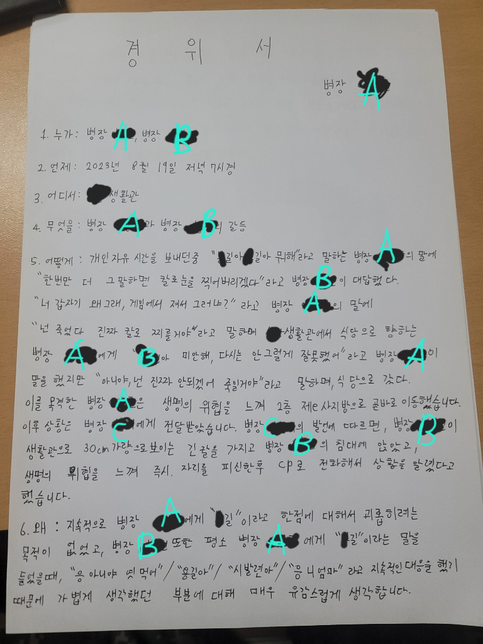 경 위 서
병장 A
1. 누가 : 병장 A, 병장 B
2. 언제 : 2023년 8월 19일 저녁 7시경
3. 어디서 : 생활관
4. 무엇을 : 병장 A과 병장 B의 갈등
5. 어떻게 : 개인자유시간을 보내던중 "길아 길아 뭐해"라고 말하는 병장 A의 말에
"한번만 더 그 말하면 칼로 눈을 찍어버리겠다"라고 병장 B이 대답했다.
"너 갑자기 왜그래, 게임에서 져서 그러냐?" 라고 병장 A의 말에
"넌 죽었다 진짜 칼로 찌를거야"라고 말하며 생활관에서 식당으로 향하는
병장 A에게 "B아 미안해, 다시는 안그럴게 잘못했어"라고 병장 A이
말을 했지만 "아니야, 넌 진짜 안되겠어 죽일거야"라고 말하며, 식당으로 갔다.
이를 목격한 병장 A은 생명의 위협을 느껴 2층 제e사지방으로 곧바로 이동했습니다
이후 상황은 병장 C에게 전달받았습니다. 병장 C의 발언에 따르면, 병장 B이
생활관으로 30cm가량으로 보이는 긴칼을 가지고 병장 B의 침대에 앉았고,
생명의 위협을 느껴 즉시 자리를 피신한후 CP로 전화해서 상황을 알렸다고
했습니다.
6. 왜 : 지속적으로 병장 A에게 "길"이라고 한점에 대해서 괴롭히려는
목적이 없었고, 병장 B 또한 평소 병장 A에게 "길"이라는 말을
들었을때, "응 아니야 엿먹어"/"응길아"/"시발련아"/"응니엄마"라고 지속적인 대응을 했기
때문에 가볍게 생각했던 부분에 대해 매우 유감스럽게 생각합니다.